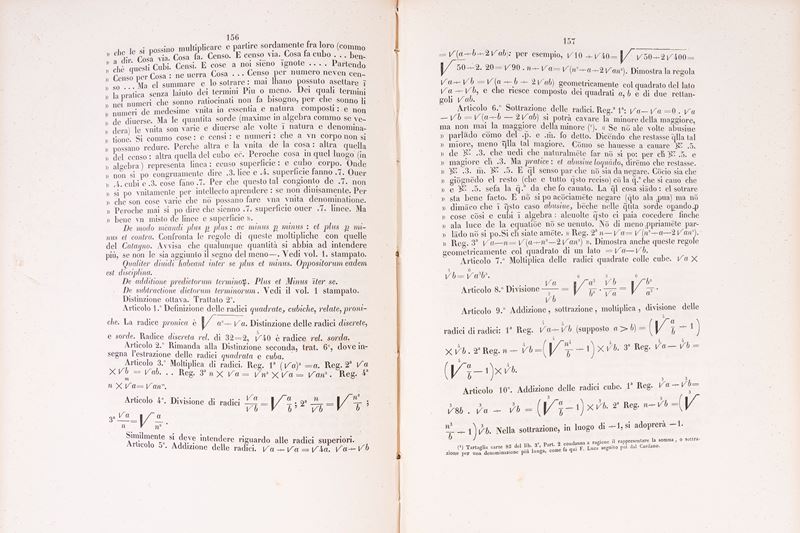 156
» che le si possino multiplicare e partire sordamente fra loro (commo
» a dir. Cosa via. Cosa fa. Censo. E censo via. Cosa fa cubo . . . ben-
» chè questi Cubi. Censi. E cose a noi sieno ignote . . . . Partendo
» Censo per Cosa: ne uerra Cosa . . . Censo per numero neven cen-
» so . . . Ma el summare e lo sotrare: mai lhano possuto asettare i
» la pratica senza laiuto dei termini Piu o meno. Dei quali termini
» nei numeri che sonno ratiocinati non fa bisogno, per che sonno li
» numeri de medesime vnita in essentia e natura composti: e non
» de diuerse. Ma le quantita sorde (maxime in algebra commo se ve-
» dera) le vnita son varie e diuerse ale volte i natura e denomina-
» tione. Si commo cose: e censi: e numeri: che a vn corpo non si
» possano redure. Perche altra e la vnita de la cosa: altra quella
» del censo: altra quella del cubo ec. Peroche cosa in quel luogo (in
» algebra) representa linea: censo superficie: e cubo corpo. Onde
» non si po congruamente dire .3. lice e .4. superficie fanno .7. Ouer
» .4. cubi e .3. cose fano .7. Per che questo tal congionto de .7. non
» si po vnitamente per intellecto aprendere: se non diuisamente. Per
» che son cose varie che nō possano fare vna vnita denominatione.
» Peroche mai si po dire che sienno .7. superficie ouer .7. linee. Ma
» bene vn misto de linee e superficie ».
De modo sicandi plus p plus: ac minus p minus: et plus p mi-
nus et contra. Confronta le regole di queste moltipliche con quelle
del Catagno. Avvisa che qualunque quantità si abbia ad intendere
più, se non le sia aggiunto il segno del meno—. Vedi vol. 1. stampato.
Qualiter diuidi habeant inter se plus et minus. Oppositorum eadem
est disciplina.
De additione predictorum terminoꝝ. Plus et Minus iter se.
De subtractione dictorum terminorum. Vedi il vol. 1 stampato.
Distinzione ottava. Trattato 2°.
Articolo 1.° Definizione delle radici quadrate, cubiche, relate, proni-
che. La radice pronica è √ a²—√a. Distinzione delle radici discrete,
e sorde. Radice discreta rel. di 32=2, √40 è radice rel. sorda.
Articolo 2.° Rimanda alla Distinzione seconda, trat. 6°, dove in-
segna l'estrazione delle radici quadrata e cuba.
Articolo 3.° Moltiplica di radici. Reg. 1ª (√a)² =a. Reg. 2ª √a
X √b = √ab. . . Reg. 3ª n X √a = √n² X √a = √an². Reg. 4ª
n X √a= √anⁿ.
Articolo 4°. Divisione di radici √a/√b = √ a/b ; 2ª n/√b = √ n²/b ;
3ª √a/n = √ a/n² .
Similmente si deve intendere riguardo alle radici superiori.
Articolo 5°. Addizione delle radici. √a + √a = √4a. √a + √b
157
= √(a+b+2√ab): per esempio, √10 + √40 = √ 50+2√400 =
√ 50+2. 20 = √90 . n+√a= √(n²+a+2√an²). Dimostra la regola
√a+√b = √(a + b + 2√ab) geometricamente col quadrato del lato
√a+√b, e che riesce composto dei quadrati a, b e di due rettan-
goli √ab.
Articolo 6.° Sottrazione delle radici. Reg.ª 1ª: √a—√a =0 . √a
—√b = √(a+b — 2√ab) si potrà cavare la minore della maggiore,
ma non mai la maggiore della minore (¹). « Se nō ale volte abusine
» parlādo cōmo del .p. e .m̃. fo detto. Dicēndo che restasse q̃lla tal
» miore, meno q̃lla tal magiore.
» magiore
» giōgnēdo el resto
» sta bene facto.
» ala luce de la equatiōe nō se uenuto.
» lādo nō si po. Si ch siate amēte. » Reg. 2ª n—√a= √(n²+a—2√an²).
» Reg. 3ª √a—n= √(a+n²—2√an²) ». Dimostra anche queste regole
geometricamente col quadrato di un lato = √a—√b.
Articolo 7.° Moltiplica delle radici quadrate colle cube. √a X
∛b= ⁶√a³b².
Articolo 8.° Divisione √a/∛b = ⁶√ a³/b² . ∛b/√a = ⁶√ b²/a³ .
Articolo 9.° Addizione, sottrazione, moltiplica, divisione delle
radici di radici: 1ª Reg. ∜a+∜b (supposto a > b) = (∜ a/b + 1)
X ∜b . 2ª Reg. n + ∜b = (∜ n⁴/b + 1) X ∜b. 3ª Reg. ∜a—∜b =
(∜ a/b — 1) X ∜b.
Articolo 10°. Addizione delle radici cube. 1ª Reg. ∛a + ∛b =
∛8b . ∛a + ∛b = (∛ a/b + 1) X ∛b. 2ª Reg. n+∛b = (∛
n³/b + 1) X ∛b. Nella sottrazione, in luogo di +1, si adoprerà —1.
(¹) Tartaglia carte 83 del lib. 3°, Part. 2 condanna a ragione il rappresentare la somma, o sottra-
zione per una denominazione più lunga, come fa qui F. Luca seguito poi dal Cardano.